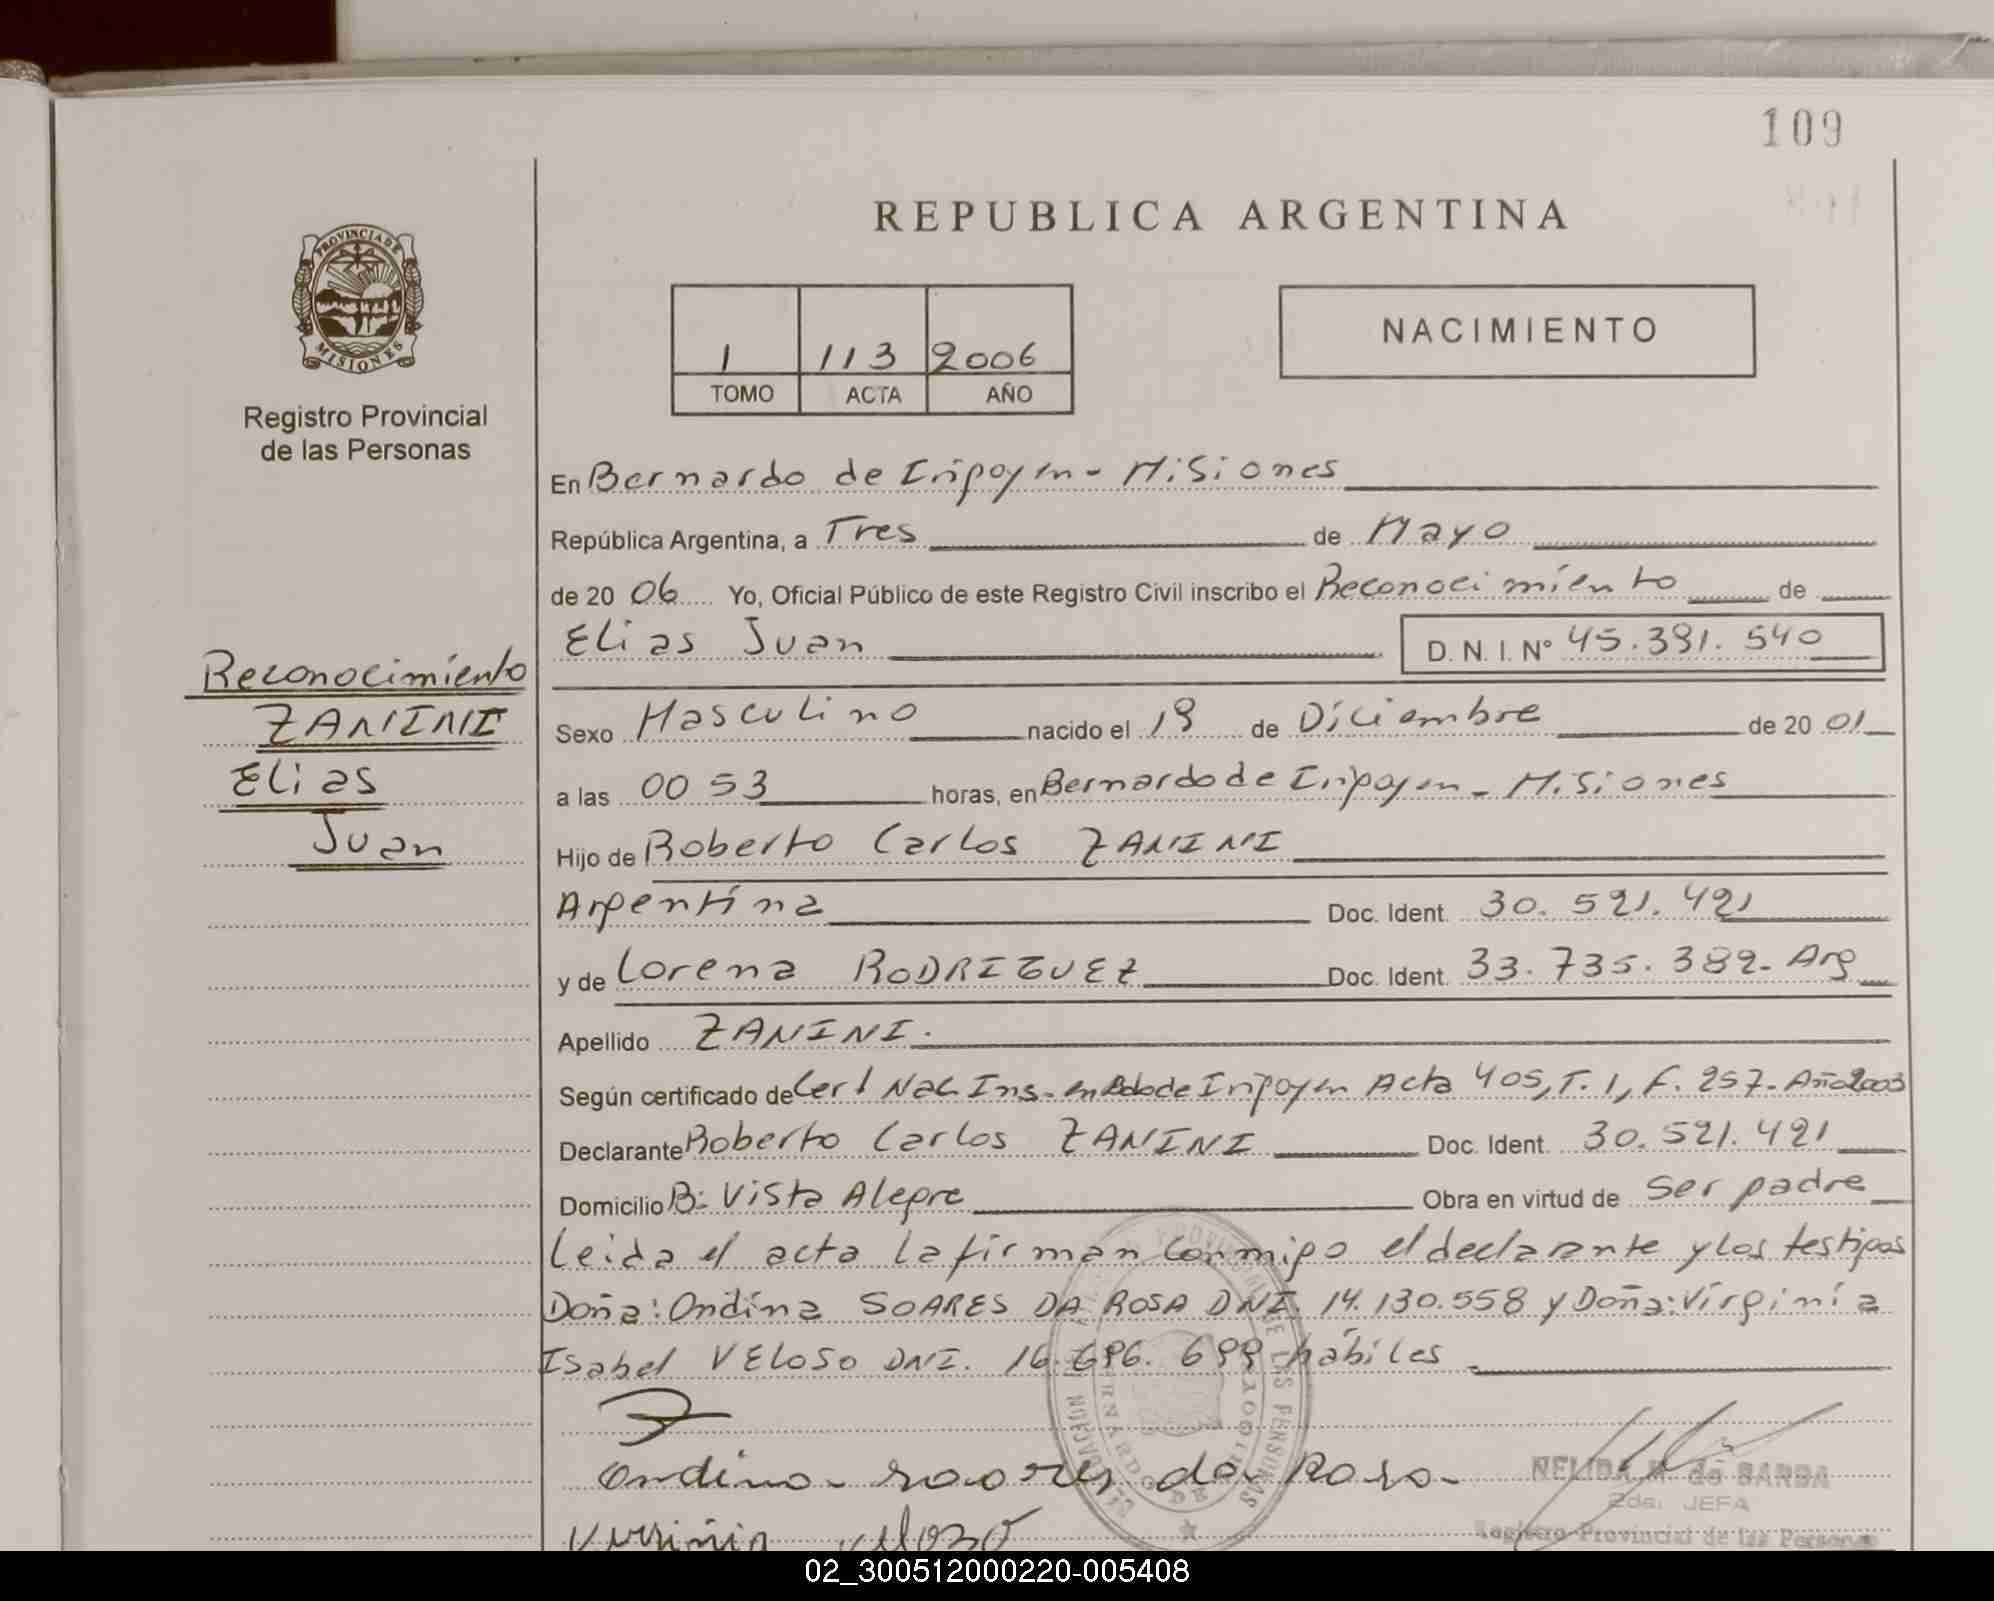 109
REPUBLICA ARGENTINA
PROVINCIA DE MISIONES
Registro Provincial
de las Personas
1 113 2006
TOMO ACTA AÑO
NACIMIENTO
En Bernardo de Irigoyen - Misiones
República Argentina, a Tres de Mayo
de 2006 Yo, Oficial Público de este Registro Civil inscribo el Reconocimiento de
Elias Juan D. N. I. Nº 45.391.540
Reconocimiento
ZANINI
Elias
Juan
Sexo Masculino nacido el 19 de Diciembre de 2001
a las 00 53 horas, en Bernardo de Irigoyen - Misiones
Hijo de Roberto Carlos ZANINI
Argentina Doc. Ident. 30.521.421
y de Lorena RODRIGUEZ Doc. Ident. 33.735.389 - Arg
Apellido ZANINI.
Según certificado de Cert Nac Ins. en Bdo de Irigoyen Acta 405, T. 1, F. 257 - Año 2003
Declarante Roberto Carlos ZANINI Doc. Ident. 30.521.421
Domicilio B: Vista Alegre Obra en virtud de Ser padre
Leida el acta la firman conmigo el declarante y los testigos
Doña: Ondina SOARES DA ROSA DNI. 14.130.558 y Doña: Virginia
Isabel VELOSO DNI. 16.696.699 hábiles
Ondina soares da Rosa
NELIDA M. de BARBA
2da. JEFA
Registro Provincial de las Personas
02_300512000220-005408